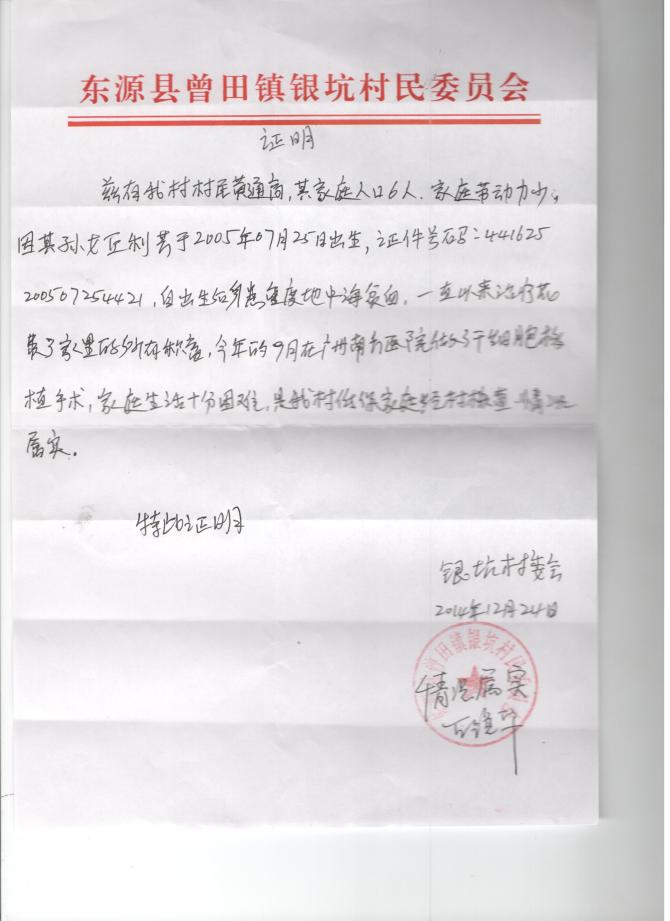 东源县曾田镇银坑村民委员会
证明
兹有我村村民黄通商,其家庭人口6人.家庭劳动力少,
因其孙女丘利芳于2005年07月25日出生,证件号码:441625
200507254421,自出生后身患重度地中海贫血,一直以来治疗花
费了家里的所有积蓄,今年的9月在广州南方医院做了干细胞移
植手术,家庭生活十分困难,是我村低保家庭 经村核查 情况
属实。
特此证明
银坑村委会
2014年12月24日
曾田镇银坑村民
情况属实